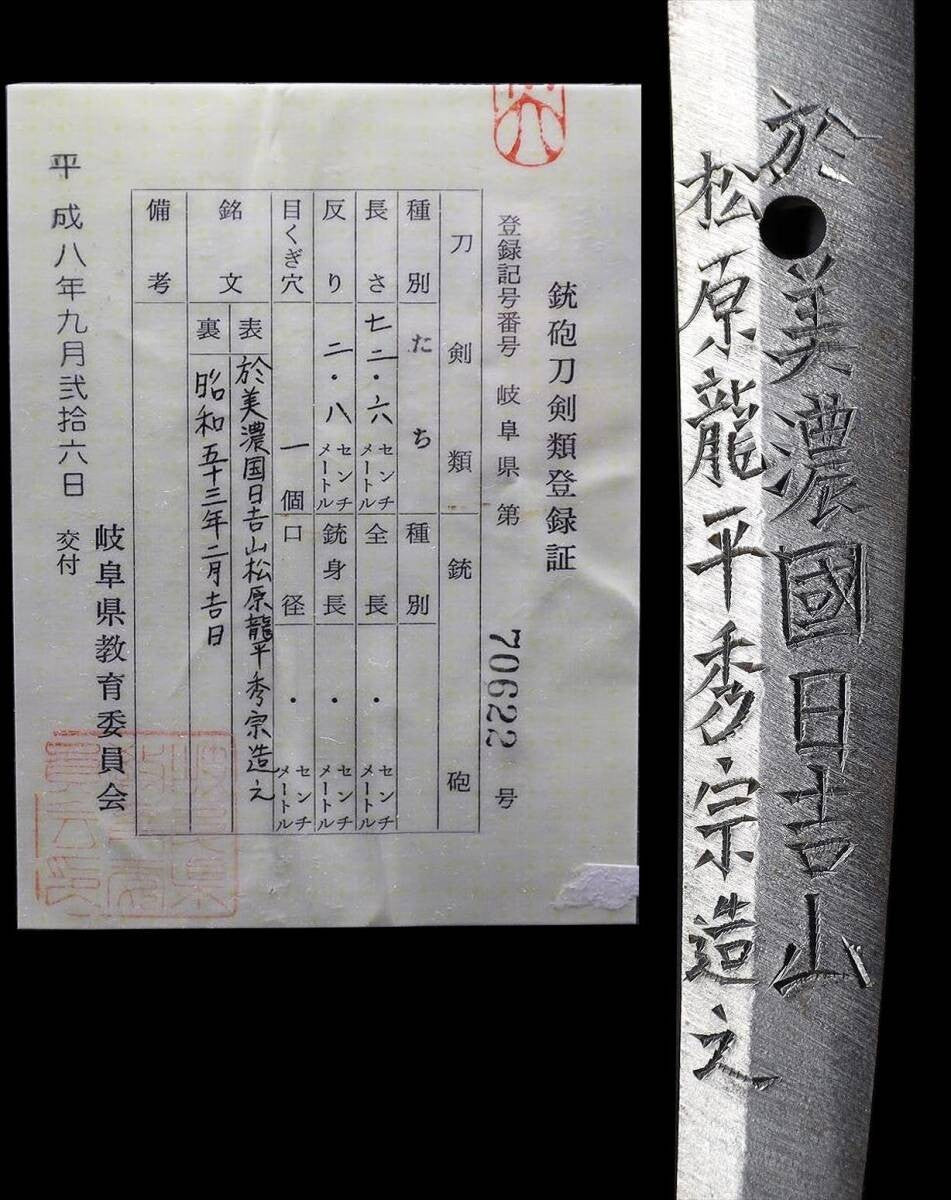 銃砲刀剣類登録証
登録記号番号 岐阜県 第 70622 号
刀剣類 銃砲
種別 たち 種別
長さ 七二・六 センチメートル 全長 ・ センチメートル
反り 二・八 センチメートル 銃身長 ・ センチメートル
目くぎ穴 一個 口径 ・ センチメートル
銘文 表 於美濃国日吉山松原龍平秀宗造之
裏 昭和五十三年二月吉日
備考
平成八年九月弐拾六日 交付
岐阜県教育委員会
於美濃國日吉山
松原龍平秀宗造之